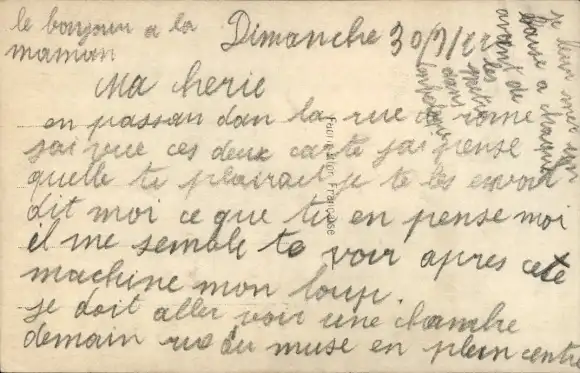 le bonjour a la
maman
Dimanche 30/7/22
Ma cherie
en passan dan la rue de rome
jai vue ces deux carte jai pense
quelle te plairait je te les envoit
dit moi ce que tu en pense moi
il me semble te voir apres cete
machine mon loup.
je doit aller voir une chambre
demain rue du muse en plein centre
Fabrication Française
je leur met un
baise a chaque
avant de
les metre
dans